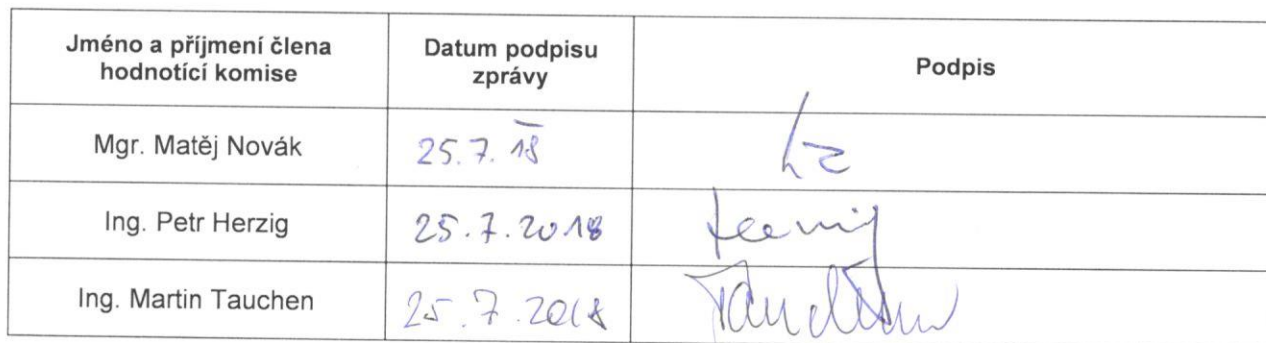 Jméno a příjmení člena
hodnotící komise
Datum podpisu
zprávy
Podpis
Mgr. Matěj Novák
25.7.18
Ing. Petr Herzig
25.7.2018
Ing. Martin Tauchen
25.7.2018